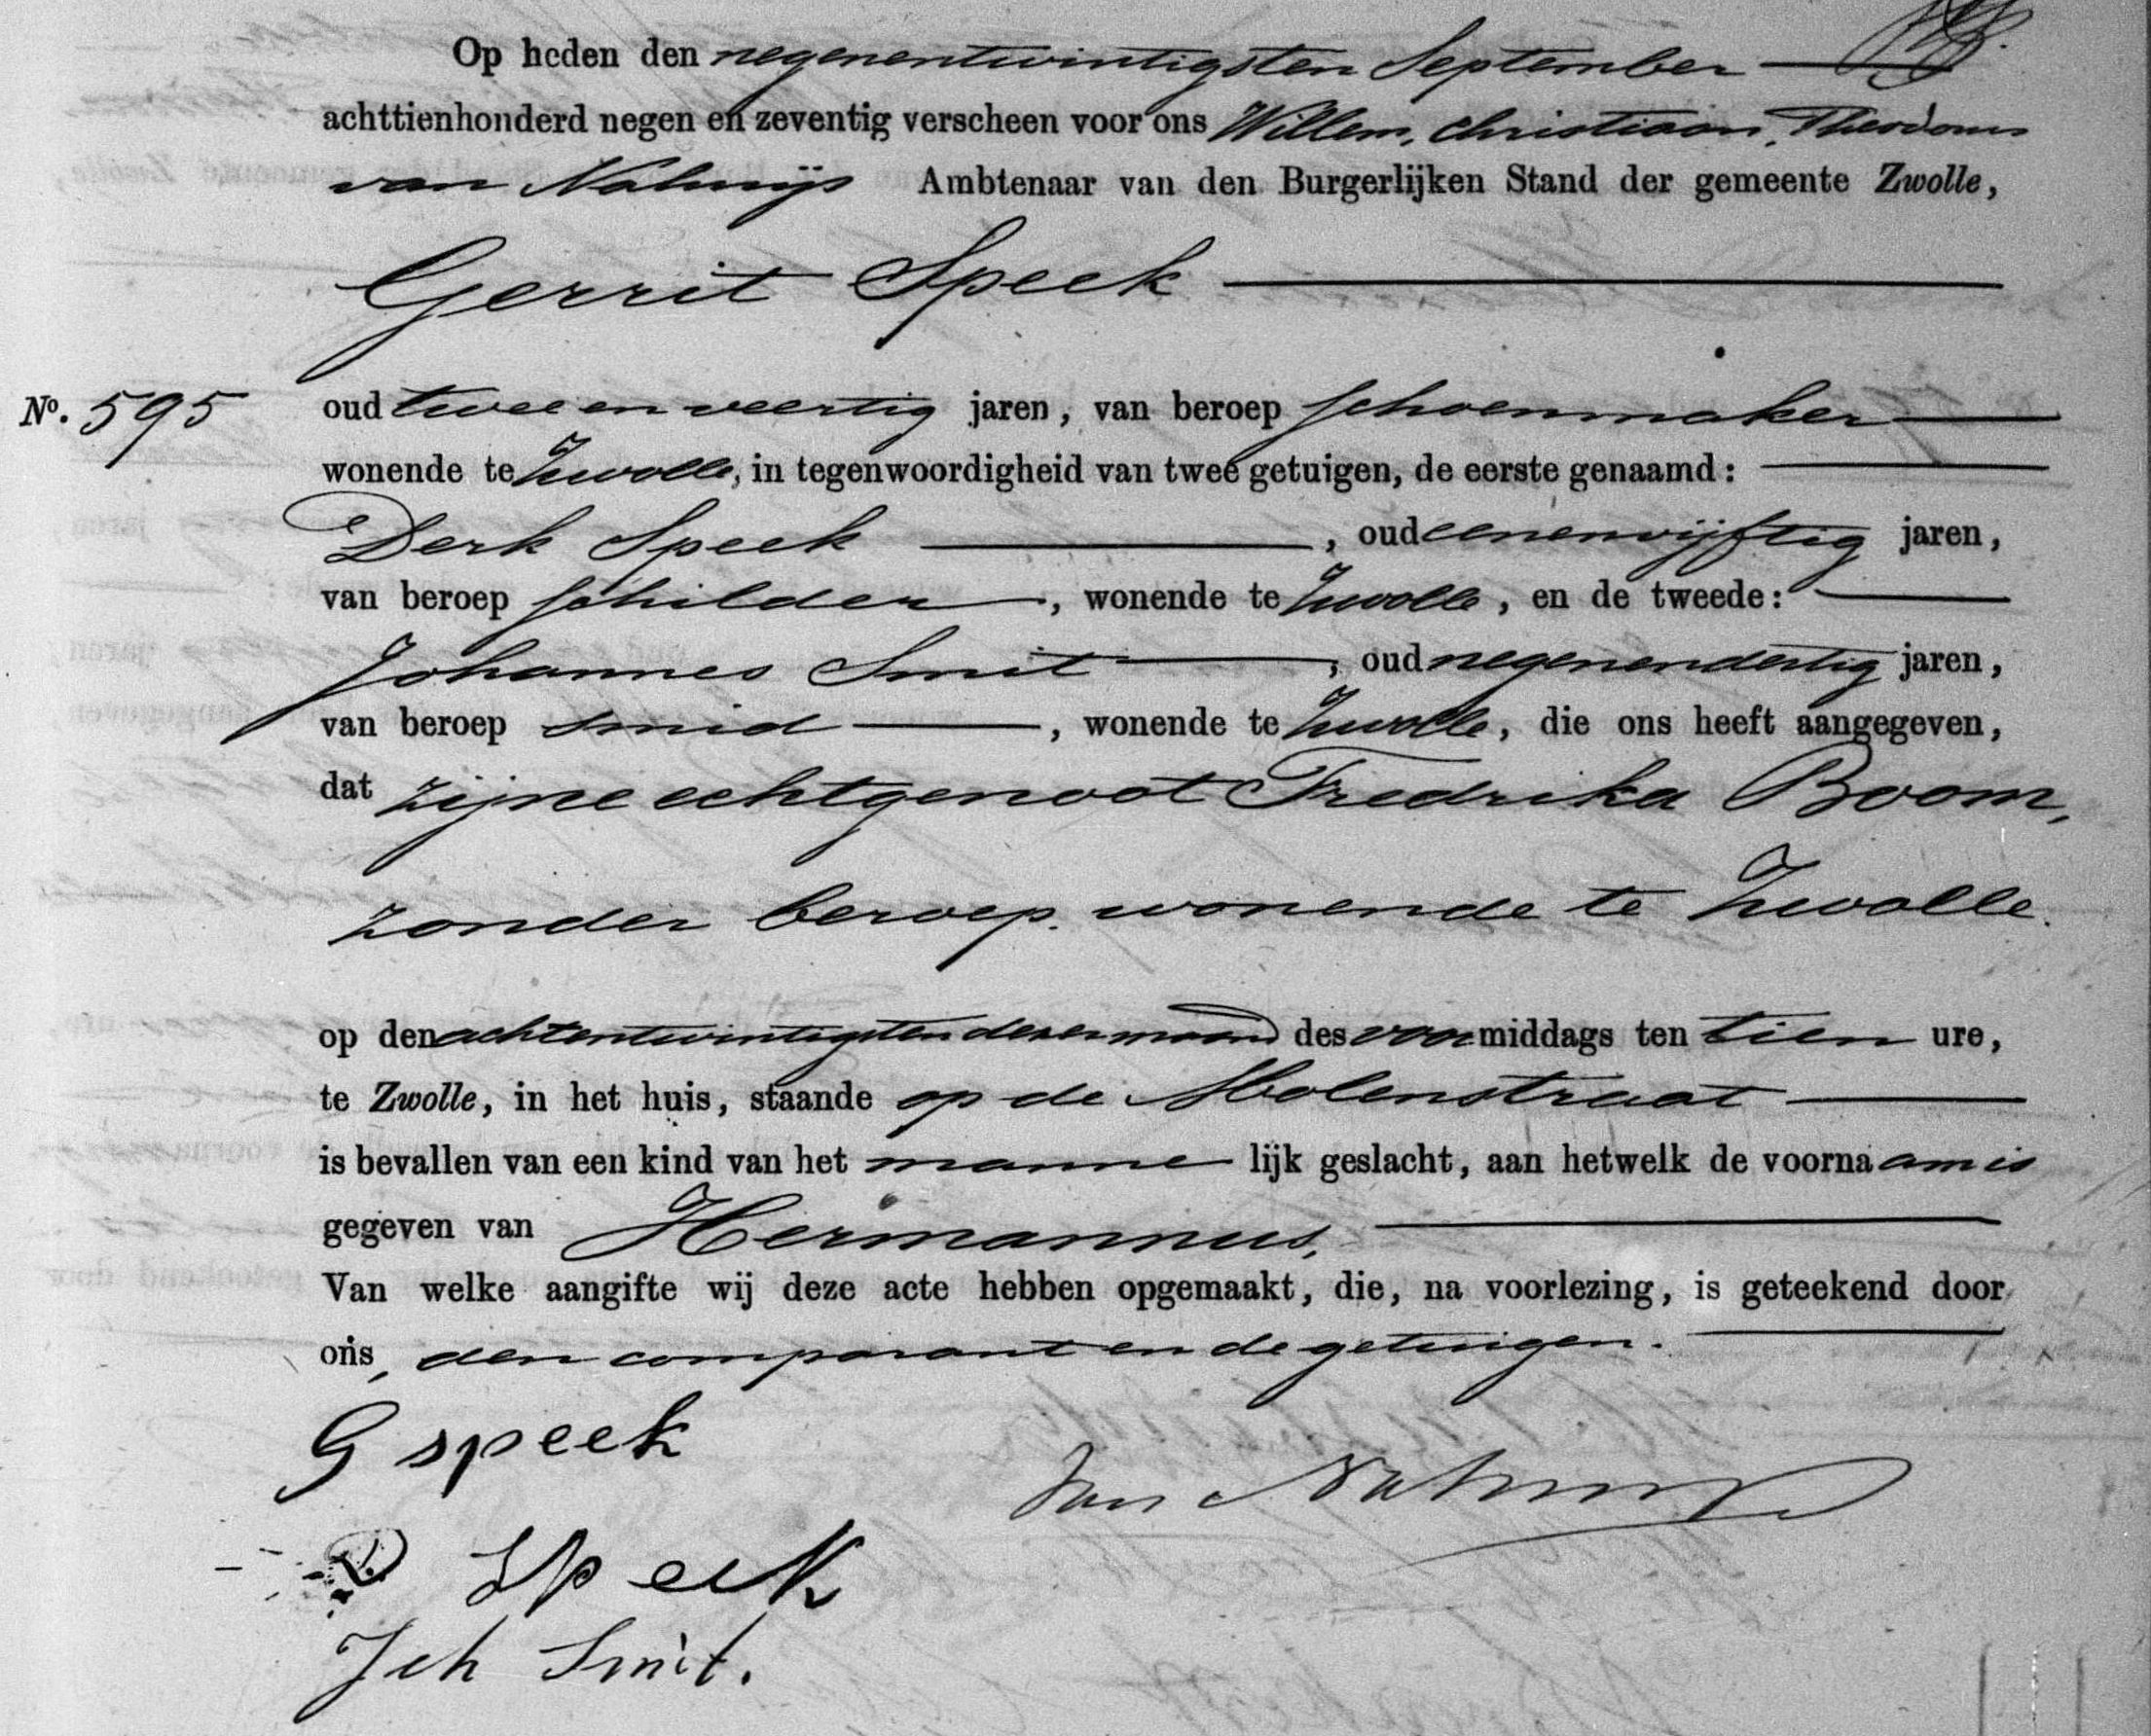 Op heden den negenentwintigsten September
achttienhonderd negen en zeventig verscheen voor ons Willem, Christiaan, Theodorus
van Nahuijs Ambtenaar van den Burgerlijken Stand der gemeente Zwolle,
Gerrit Speek
No. 595
oud twee en veertig jaren, van beroep schoenmaker
wonende te Zwolle, in tegenwoordigheid van twee getuigen, de eerste genaamd:
Derk Speek, oud eenenvijftig jaren,
van beroep schilder, wonende te Zwolle, en de tweede:
Johannes Smit, oud negenendertig jaren,
van beroep smid, wonende te Zwolle, die ons heeft aangegeven,
dat zijne echtgenoot Fredrika Boom,
zonder beroep. wonende te Zwolle.
op den achtentwintigsten dezer maand des voormiddags ten tien ure,
te Zwolle, in het huis, staande op de Molenstraat
is bevallen van een kind van het mannelijk geslacht, aan hetwelk de voornaam is
gegeven van Hermannus,
Van welke aangifte wij deze acte hebben opgemaakt, die, na voorlezing, is geteekend door
ons, den comparant en de getuigen.
G speek
Van Nahuys
D Speek
Joh Smit.